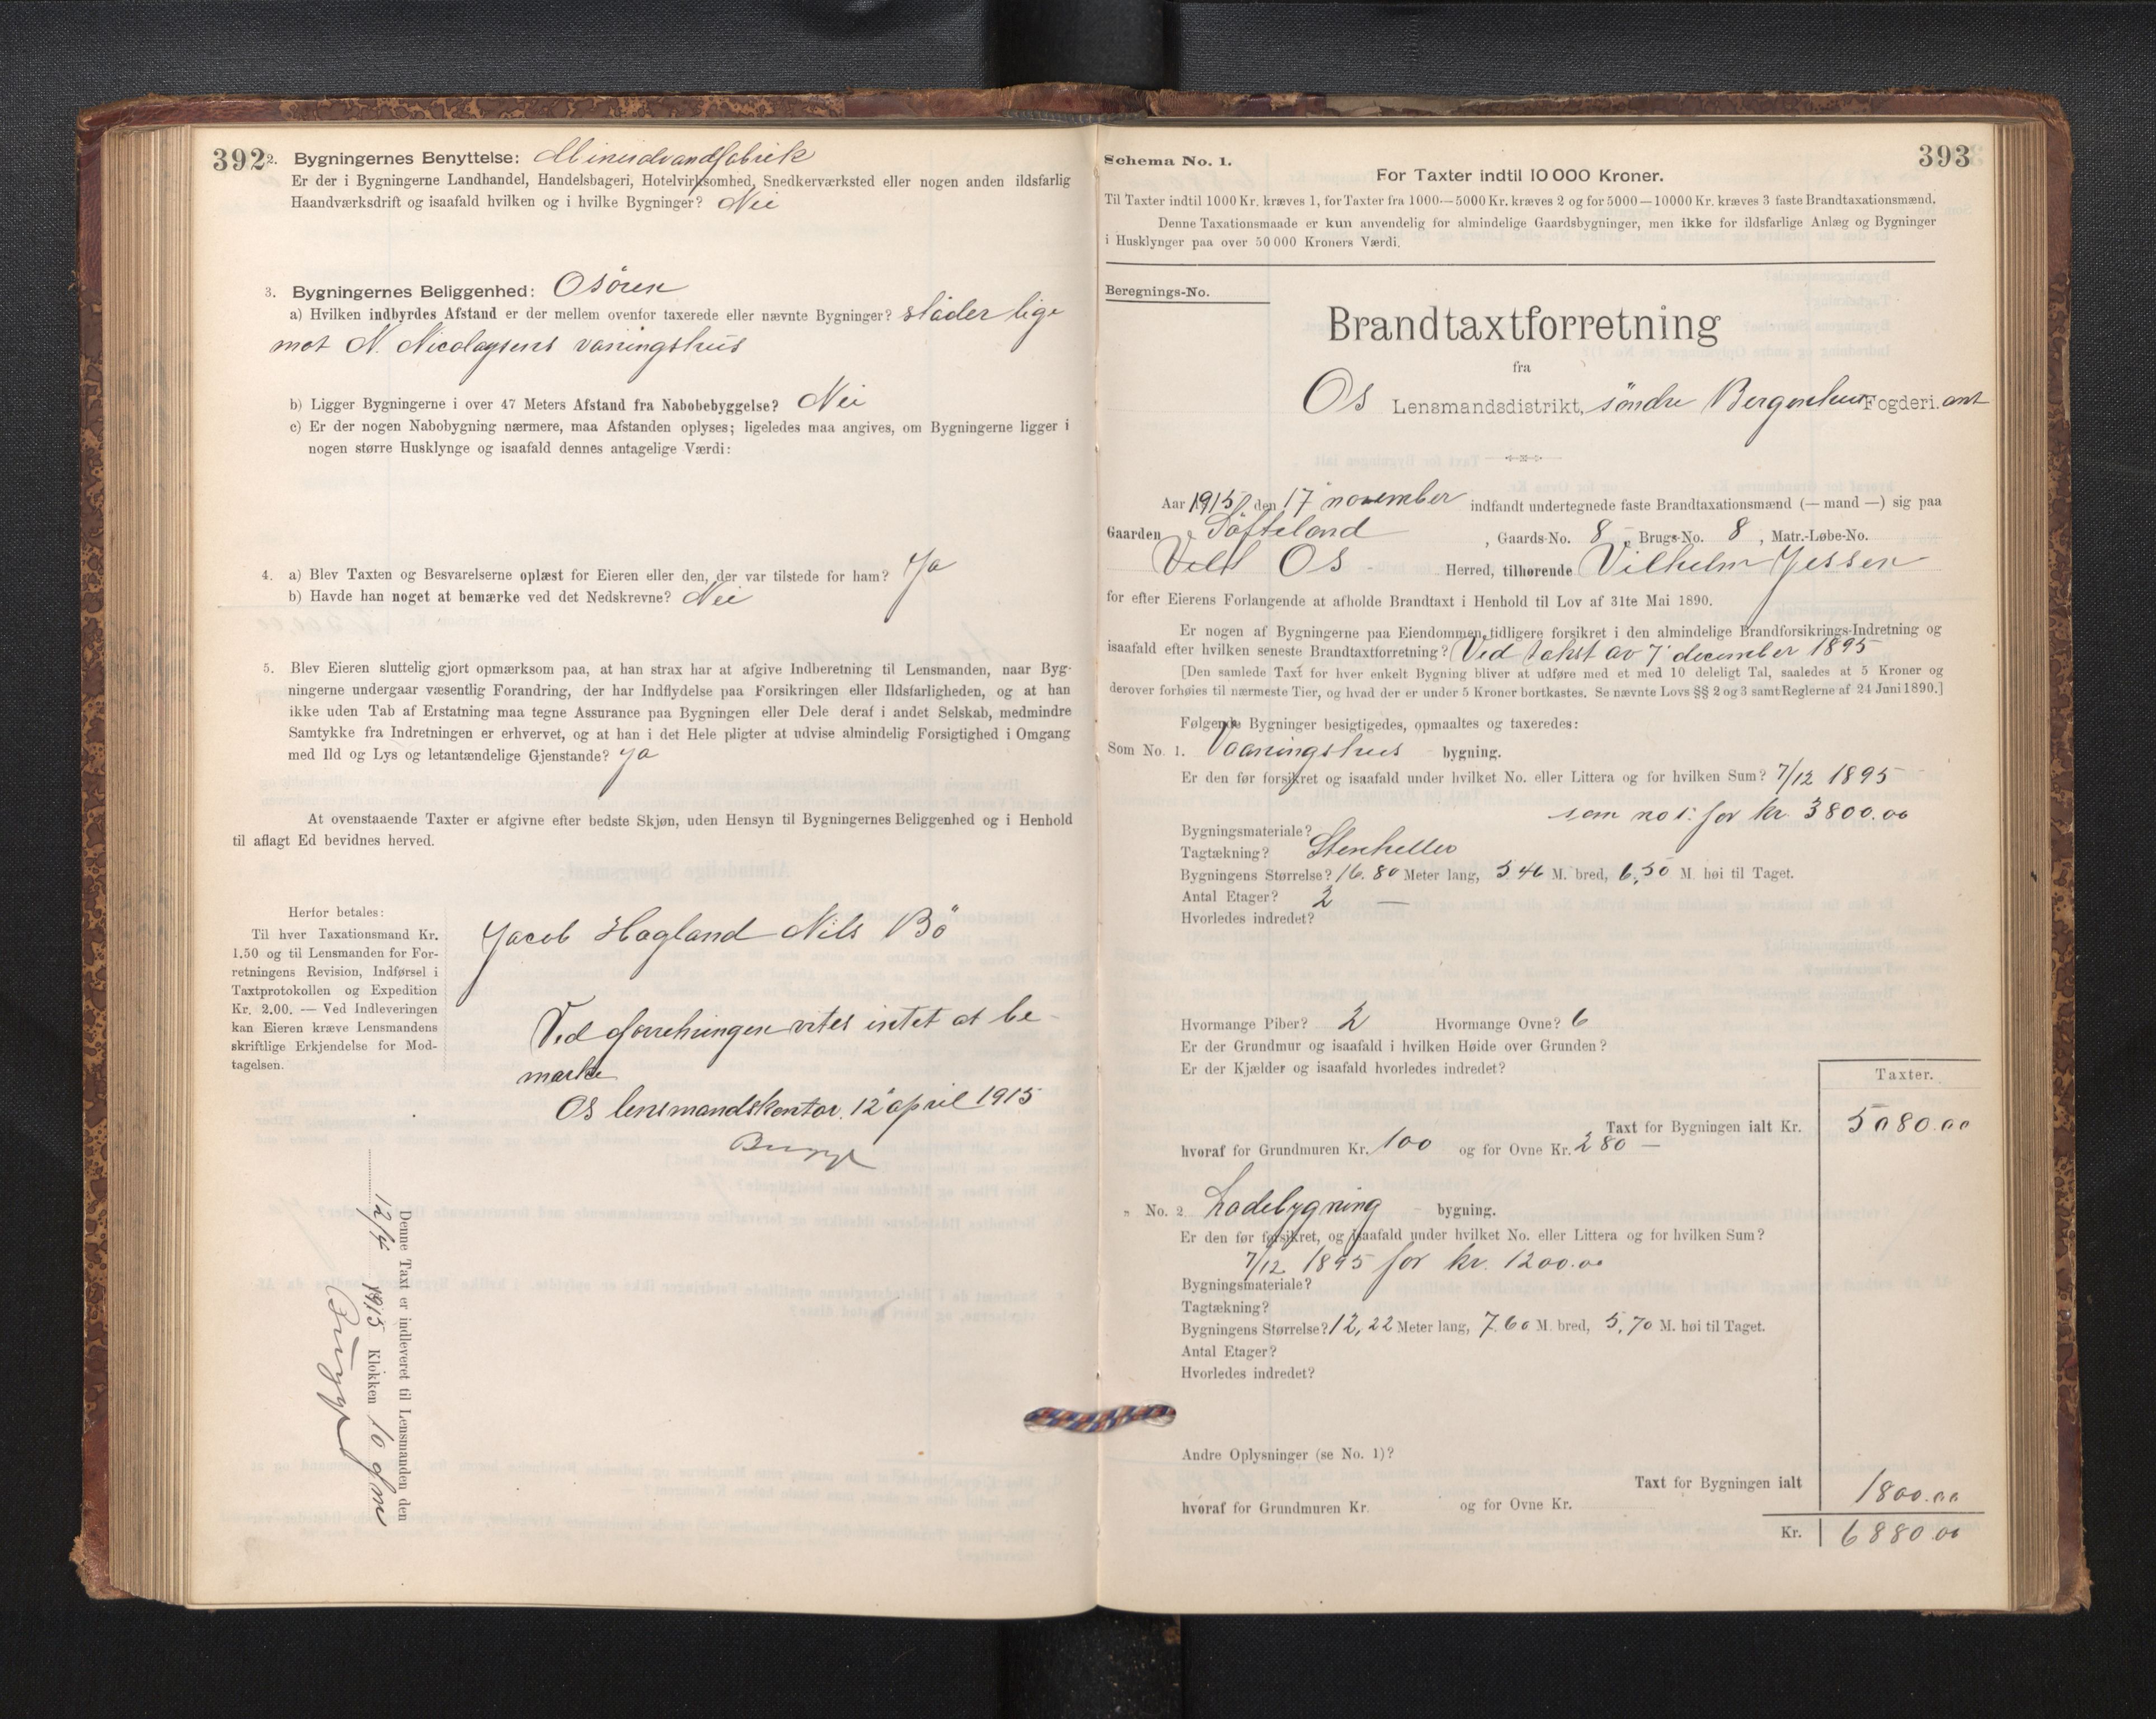 392
2. Bygningernes Benyttelse: Mineralvandfabrik
Er der i Bygningerne Landhandel, Handelsbageri, Hotelvirksomhed, Snedkerværksted eller nogen anden ildsfarlig
Haandværksdrift og isaafald hvilken og i hvilke Bygninger? Nei
3. Bygningernes Beliggenhed: Osören
a) Hvilken indbyrdes Afstand er der mellem ovenfor taxerede eller nævnte Bygninger? støder lige
mot N. Nicolaysens vaningshus
b) Ligger Bygningerne i over 47 Meters Afstand fra Nabobebyggelse? Nei
c) Er der nogen Nabobygning nærmere, maa Afstanden oplyses; ligeledes maa angives, om Bygningerne ligger i
nogen større Husklynge og isaafald dennes antagelige Værdi:
4. a) Blev Taxten og Besvarelserne oplæst for Eieren eller den, der var tilstede for ham? Ja
b) Havde han noget at bemærke ved det Nedskrevne? Nei
5. Blev Eieren sluttelig gjort opmærksom paa, at han strax har at afgive Indberetning til Lensmanden, naar Byg-
ningerne undergaar væsentlig Forandring, der har Indflydelse paa Forsikringen eller Ildsfarligheden, og at han
ikke uden Tab af Erstatning maa tegne Assurance paa Bygningen eller Dele deraf i andet Selskab, medmindre
Samtykke fra Indretningen er erhvervet, og at han i det Hele pligter at udvise almindelig Forsigtighed i Omgang
med Ild og Lys og letantændelige Gjenstande? Ja
At ovenstaaende Taxter er afgivne efter bedste Skjøn, uden Hensyn til Bygningernes Beliggenhed og i Henhold
til aflagt Ed bevidnes herved.
Herfor betales:
Til hver Taxationsmand Kr.
1.50 og til Lensmanden for For-
retningens Revision, Indførsel i
Taxtprotokollen og Expedition
Kr. 2.00. — Ved Indleveringen
kan Eieren kræve Lensmandens
skriftlige Erkjendelse for Mod-
tagelsen.
Jacob Hagland Nils Bö
Ved forretningen vites intet at be-
mærke
Os lensmandskontor. 12 april 1915
Denne Taxt er indleveret til Lensmanden den
12/4 1915 Klokken 10 fm
393
Schema No. 1.
For Taxter indtil 10 000 Kroner.
Til Taxter indtil 1000 Kr. kræves 1, for Taxter fra 1000—5000 Kr. kræves 2 og for 5000—10000 Kr. kræves 3 faste Brandtaxationsmænd.
Denne Taxationsmaade er kun anvendelig for almindelige Gaardsbygninger, men ikke for ildsfarlige Anlæg og Bygninger
i Husklynger paa over 50 000 Kroners Værdi.
Beregnings-No.
Brandtaxtforretning
fra
Os Lensmandsdistrikt, söndre Bergenhus Fogderi. amt
Aar 1915, den 17 november indfandt undertegnede faste Brandtaxationsmænd (— mand —) sig paa
Gaarden Töfteland, Gaards-No. 8, Brugs-No. 8, Matr.-Løbe-No.
Os Herred, tilhørende Vilhelm Jessen
for efter Eierens Forlangende at afholde Brandtaxt i Henhold til Lov af 31te Mai 1890.
Er nogen af Bygningerne paa Eiendommen tidligere forsikret i den almindelige Brandforsikrings-Indretning og
isaafald efter hvilken seneste Brandtaxtforretning? Ved takst av 7 december 1895
[Den samlede Taxt for hver enkelt Bygning bliver at udføre med et med 10 deleligt Tal, saaledes at 5 Kroner og
derover forhøies til nærmeste Tier, og hvad der er under 5 Kroner bortkastes. Se nævnte Lovs §§ 2 og 3 samt Reglerne af 24 Juni 1890.]
Følgende Bygninger besigtigedes, opmaaltes og taxeredes:
Som No. 1. Vaaningshus bygning.
Er den før forsikret og isaafald under hvilket No. eller Littera og for hvilken Sum? 7/12 1895
som no 1. for kr. 3800.00
Bygningsmateriale?
Tagtækning? Stenheller
Bygningens Størrelse? 16.80 Meter lang, 5 46 M. bred, 6,50 M. høi til Taget.
Antal Etager? 2 —
Hvorledes indredet?
Hvormange Piber? 2 Hvormange Ovne? 6
Er der Grundmur og isaafald i hvilken Høide over Grunden?
Er der Kjælder og isaafald hvorledes indredet?
Taxter.
Taxt for Bygningen ialt Kr. 5080.00
hvoraf for Grundmuren Kr. 100 og for Ovne Kr. 280 —
„ No. 2 Ladebygning bygning.
Er den før forsikret, og isaafald under hvilket No. eller Littera og for hvilken Sum?
7/12 1895 for kr. 1200.00
Bygningsmateriale?
Tagtækning?
Bygningens Størrelse? 12,22 Meter lang, 7.60 M. bred, 5,70 M. høi til Taget.
Antal Etager?
Hvorledes indredet?
Andre Oplysninger (se No. 1)?
Taxt for Bygningen ialt 1800.00
hvoraf for Grundmuren Kr. og for Ovne Kr.
Kr. 6880.00